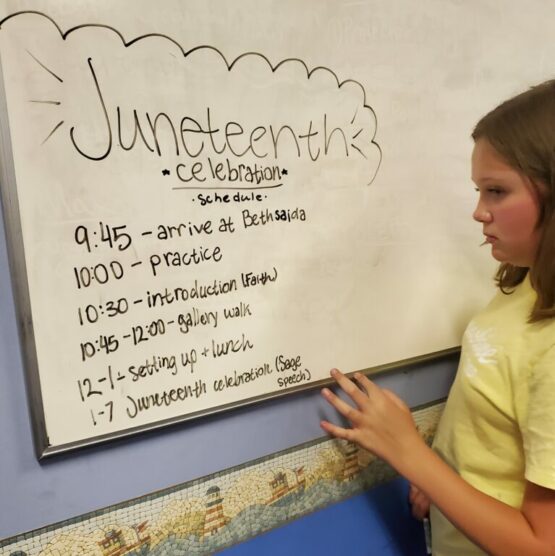 Juneteenth
*celebration*
·schedule·
9:45 - arrive at Bethsaida
10:00 - practice
10:30 - introduction (Faith)
10:45-12:00 - gallery walk
12-1 - setting up + lunch
1-7 Juneteenth celebration (Sage
speech)